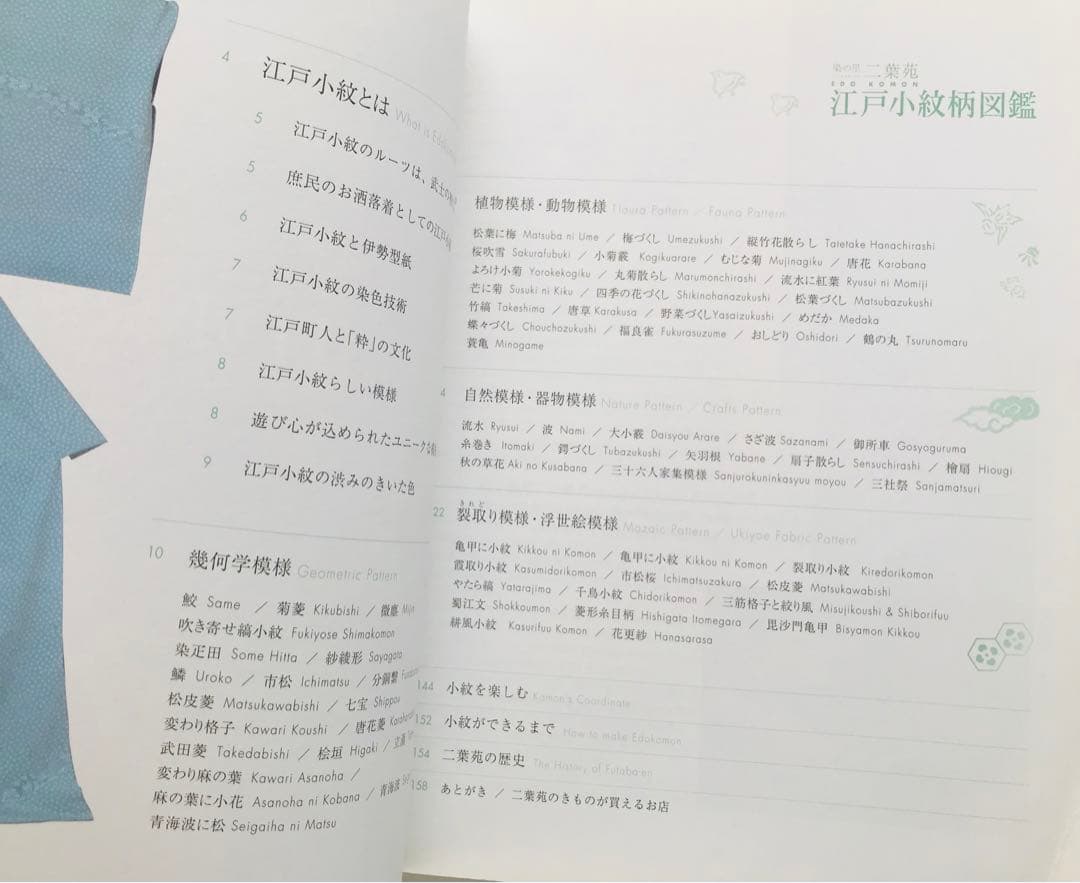 4 江戸小紋とは What is Edo
5 江戸小紋のルーツは、武士の
5 庶民のお洒落着としての江戸
6 江戸小紋と伊勢型紙
7 江戸小紋の染色技術
7 江戸町人と「粋」の文化
8 江戸小紋らしい模様
8 遊び心が込められたユニークな
9 江戸小紋の渋みのきいた色
10 幾何学模様 Geometric Pattern
鮫 Same ／ 菊菱 Kikubishi ／ 微塵 Mijin
吹き寄せ縞小紋 Fukiyose Shimakomon
染疋田 Some Hitta ／ 紗綾形 Sayagata
鱗 Uroko ／ 市松 Ichimatsu ／ 分銅繋
松皮菱 Matsukawabishi ／ 七宝 Shippou
変わり格子 Kawari Koushi ／ 唐花菱
武田菱 Takedabishi ／ 桧垣 Higaki ／
変わり麻の葉 Kawari Asanoha ／
麻の葉に小花 Asanoha ni Kobana ／ 青海波
青海波に松 Seigaiha ni Matsu
染の里 二葉苑
EDO KOMON
江戸小紋柄図鑑
植物模様・動物模様 Floura Pattern ／ Fauna Pattern
松葉に梅 Matsuba ni Ume ／ 梅づくし Umezukushi ／ 縦竹花散らし Tatetake Hanachirashi
桜吹雪 Sakurafubuki ／ 小菊霰 Kogikuarare ／ むじな菊 Mujinagiku ／ 唐花 Karabana
よろけ小菊 Yorokekogiku ／ 丸菊散らし Marumonchirashi ／ 流水に紅葉 Ryusui ni Momiji
芒に菊 Susuki ni Kiku ／ 四季の花づくし Shikinohanazukushi ／ 松葉づくし Matsubazukushi
竹縞 Takeshima ／ 唐草 Karakusa ／ 野菜づくし Yasaizukushi ／ めだか Medaka
蝶々づくし Chouchozukushi ／ 福良雀 Fukurasuzume ／ おしどり Oshidori ／ 鶴の丸 Tsurunomaru
蓑亀 Minogame
4 自然模様・器物模様 Nature Pattern ／ Crafts Pattern
流水 Ryusui ／ 波 Nami ／ 大小霰 Daisyou Arare ／ さざ波 Sazanami ／ 御所車 Gosyoguruma
糸巻き Itomaki ／ 鍔づくし Tubazukushi ／ 矢羽根 Yabane ／ 扇子散らし Sensuchirashi ／ 檜扇 Hiougi
秋の草花 Aki no Kusabana ／ 三十六人家集模様 Sanjurokuninkasyuu moyou ／ 三社祭 Sanjamatsuri
22 裂取り模様・浮世絵模様 Mozaic Pattern ／ Ukiyoe Fabric Pattern
きれど
亀甲に小紋 Kikkou ni Komon ／ 亀甲に小紋 Kikkou ni Komon ／ 裂取り小紋 Kiredorikomon
霞取り小紋 Kasumidorikomon ／ 市松桜 Ichimatsuzakura ／ 松皮菱 Matsukawabishi
やたら縞 Yatarajima ／ 千鳥小紋 Chidorikomon ／ 三筋格子と絞り風 Misujikoushi & Shiborifuu
蜀江文 Shokkoumon ／ 菱形糸目柄 Hishigata Itomegara ／ 毘沙門亀甲 Bisyamon Kikkou
絣風小紋 Kasurifuu Komon ／ 花更紗 Hanasarasa
144 小紋を楽しむ Komon's Coordinate
152 小紋ができるまで How to make Edokomon
154 二葉苑の歴史 The History of Futaba-en
158 あとがき ／ 二葉苑のきものが買えるお店